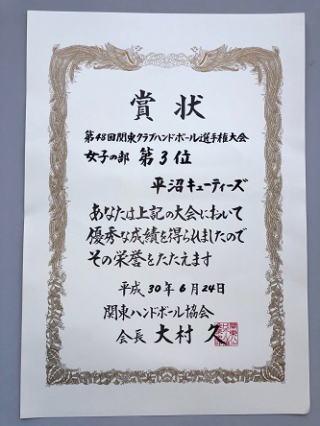 賞状
第48回関東クラブハンドボール選手権大会
女子の部 第3位
平沼キューティーズ
あなたは上記の大会において
優秀な成績を得られましたので
その栄誉をたたえます
平成30年6月24日
関東ハンドボール協会
会長 大村 久